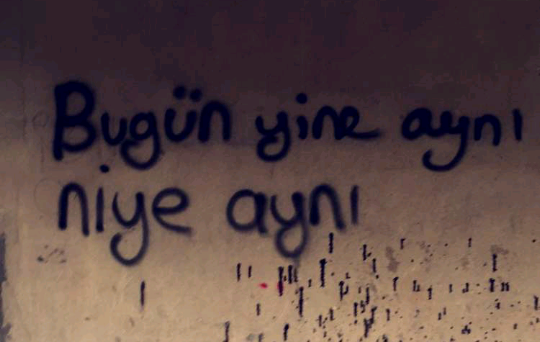 Bugün yine aynı
niye aynı